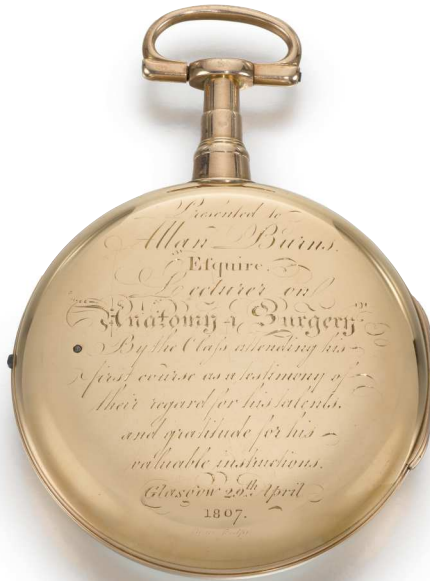 Presented to
Allan Burns.
Esquire.
Lecturer on
Anatomy & Surgery
By the Class attending his
first course as a testimony of
their regard for his talents.
and gratitude for his
valuable instructions.
Glasgow 29th April
1807.